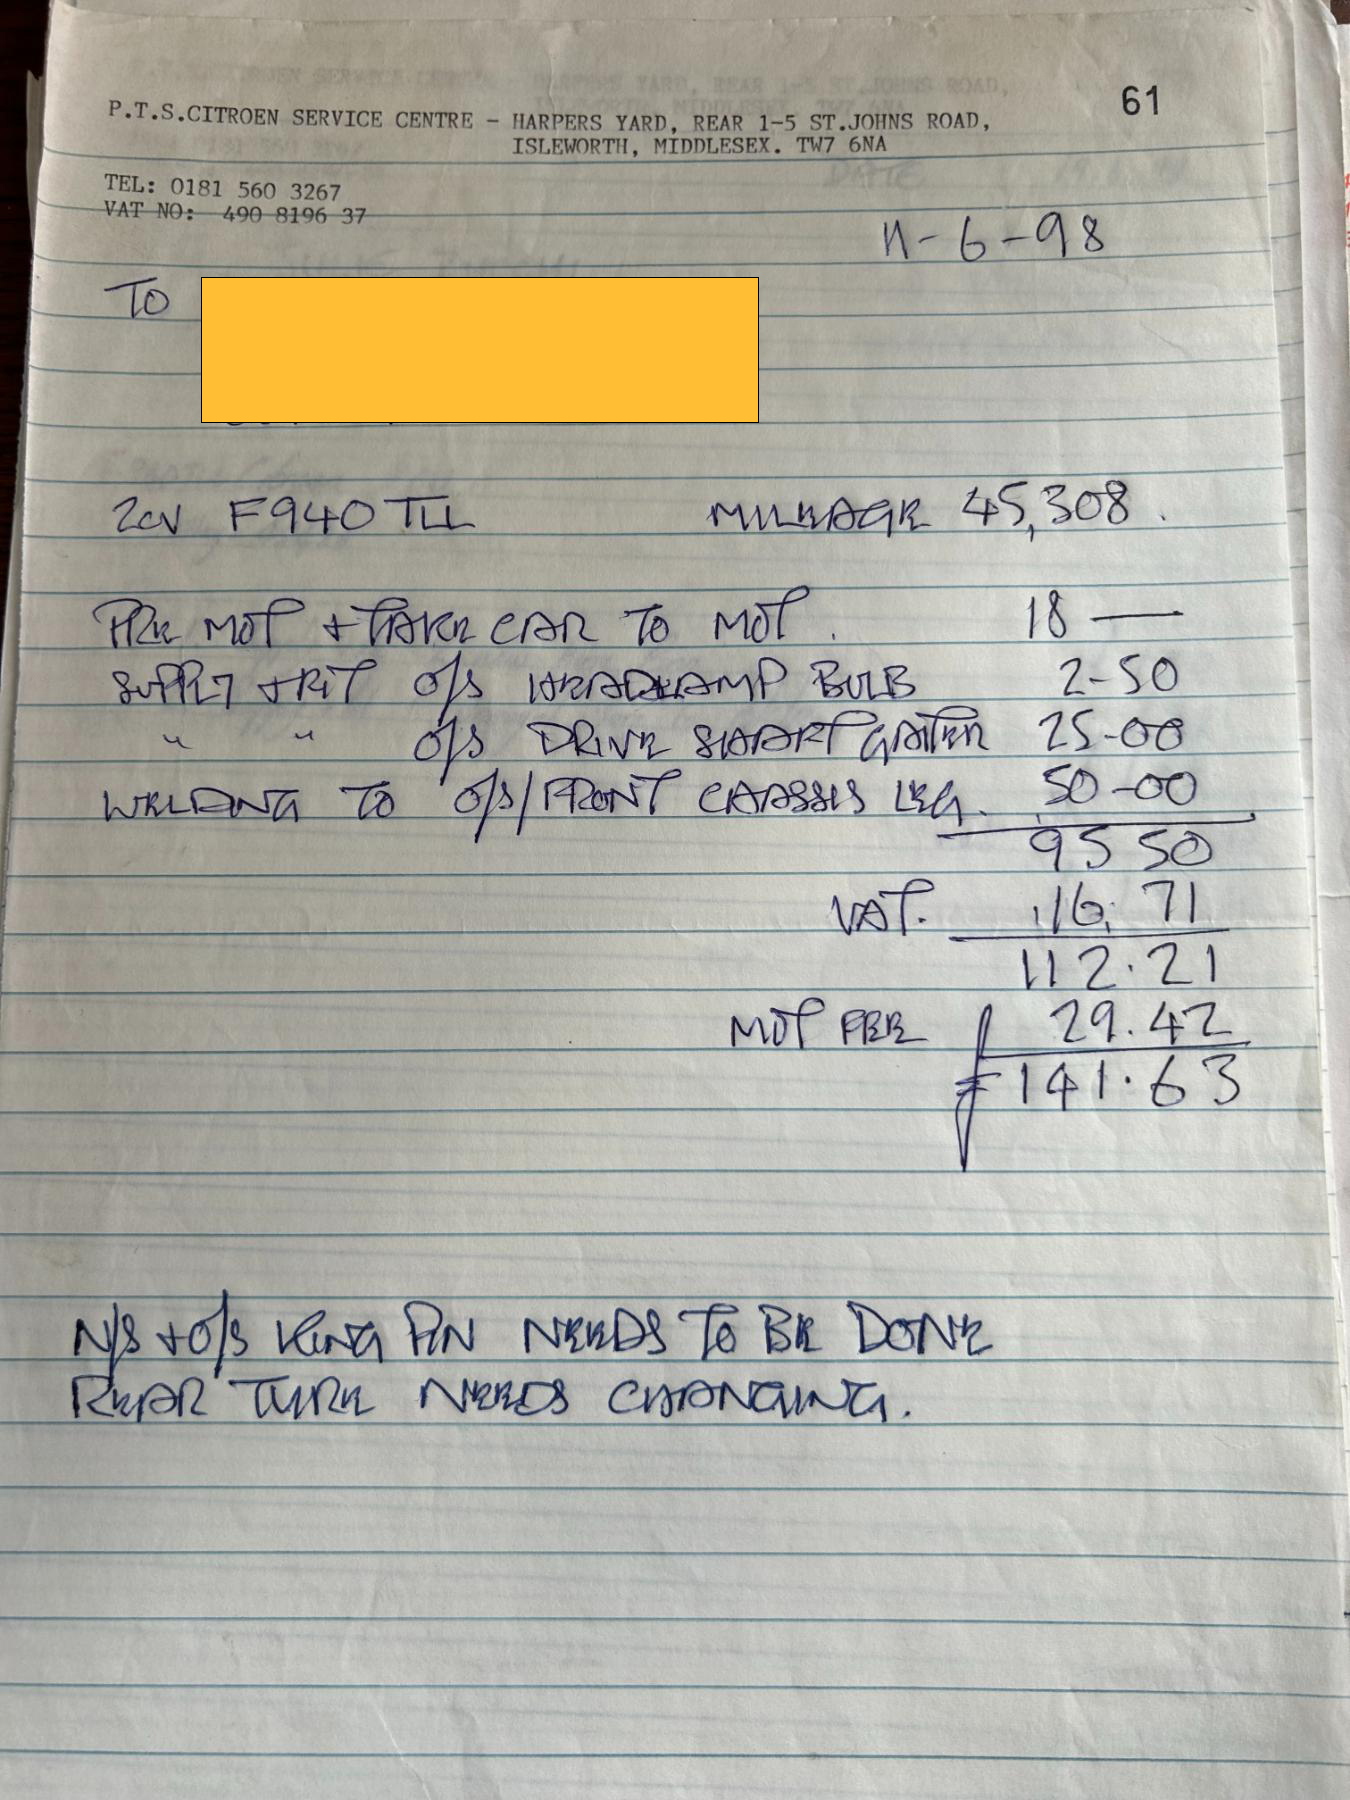 61
P.T.S.CITROEN SERVICE CENTRE - HARPERS YARD, REAR 1-5 ST.JOHNS ROAD,
ISLEWORTH, MIDDLESEX. TW7 6NA
TEL: 0181 560 3267
VAT NO: 490 8196 37
11-6-98
TO
2CV F940 TLL MILEAGE 45,308.
PRE MOT + TAKE CAR TO MOT. 18 —
SUPPLY + FIT O/S HEADLAMP BULB 2-50
" " O/S DRIVE SHAFT GAITER 25-00
WELDING TO O/S/FRONT CHASSIS LEG. 50-00
95 50
VAT. 16. 71
112.21
MOT FEE 29.42
£141.63
N/S + O/S KING PIN NEEDS TO BE DONE
REAR TYRE NEEDS CHANGING.